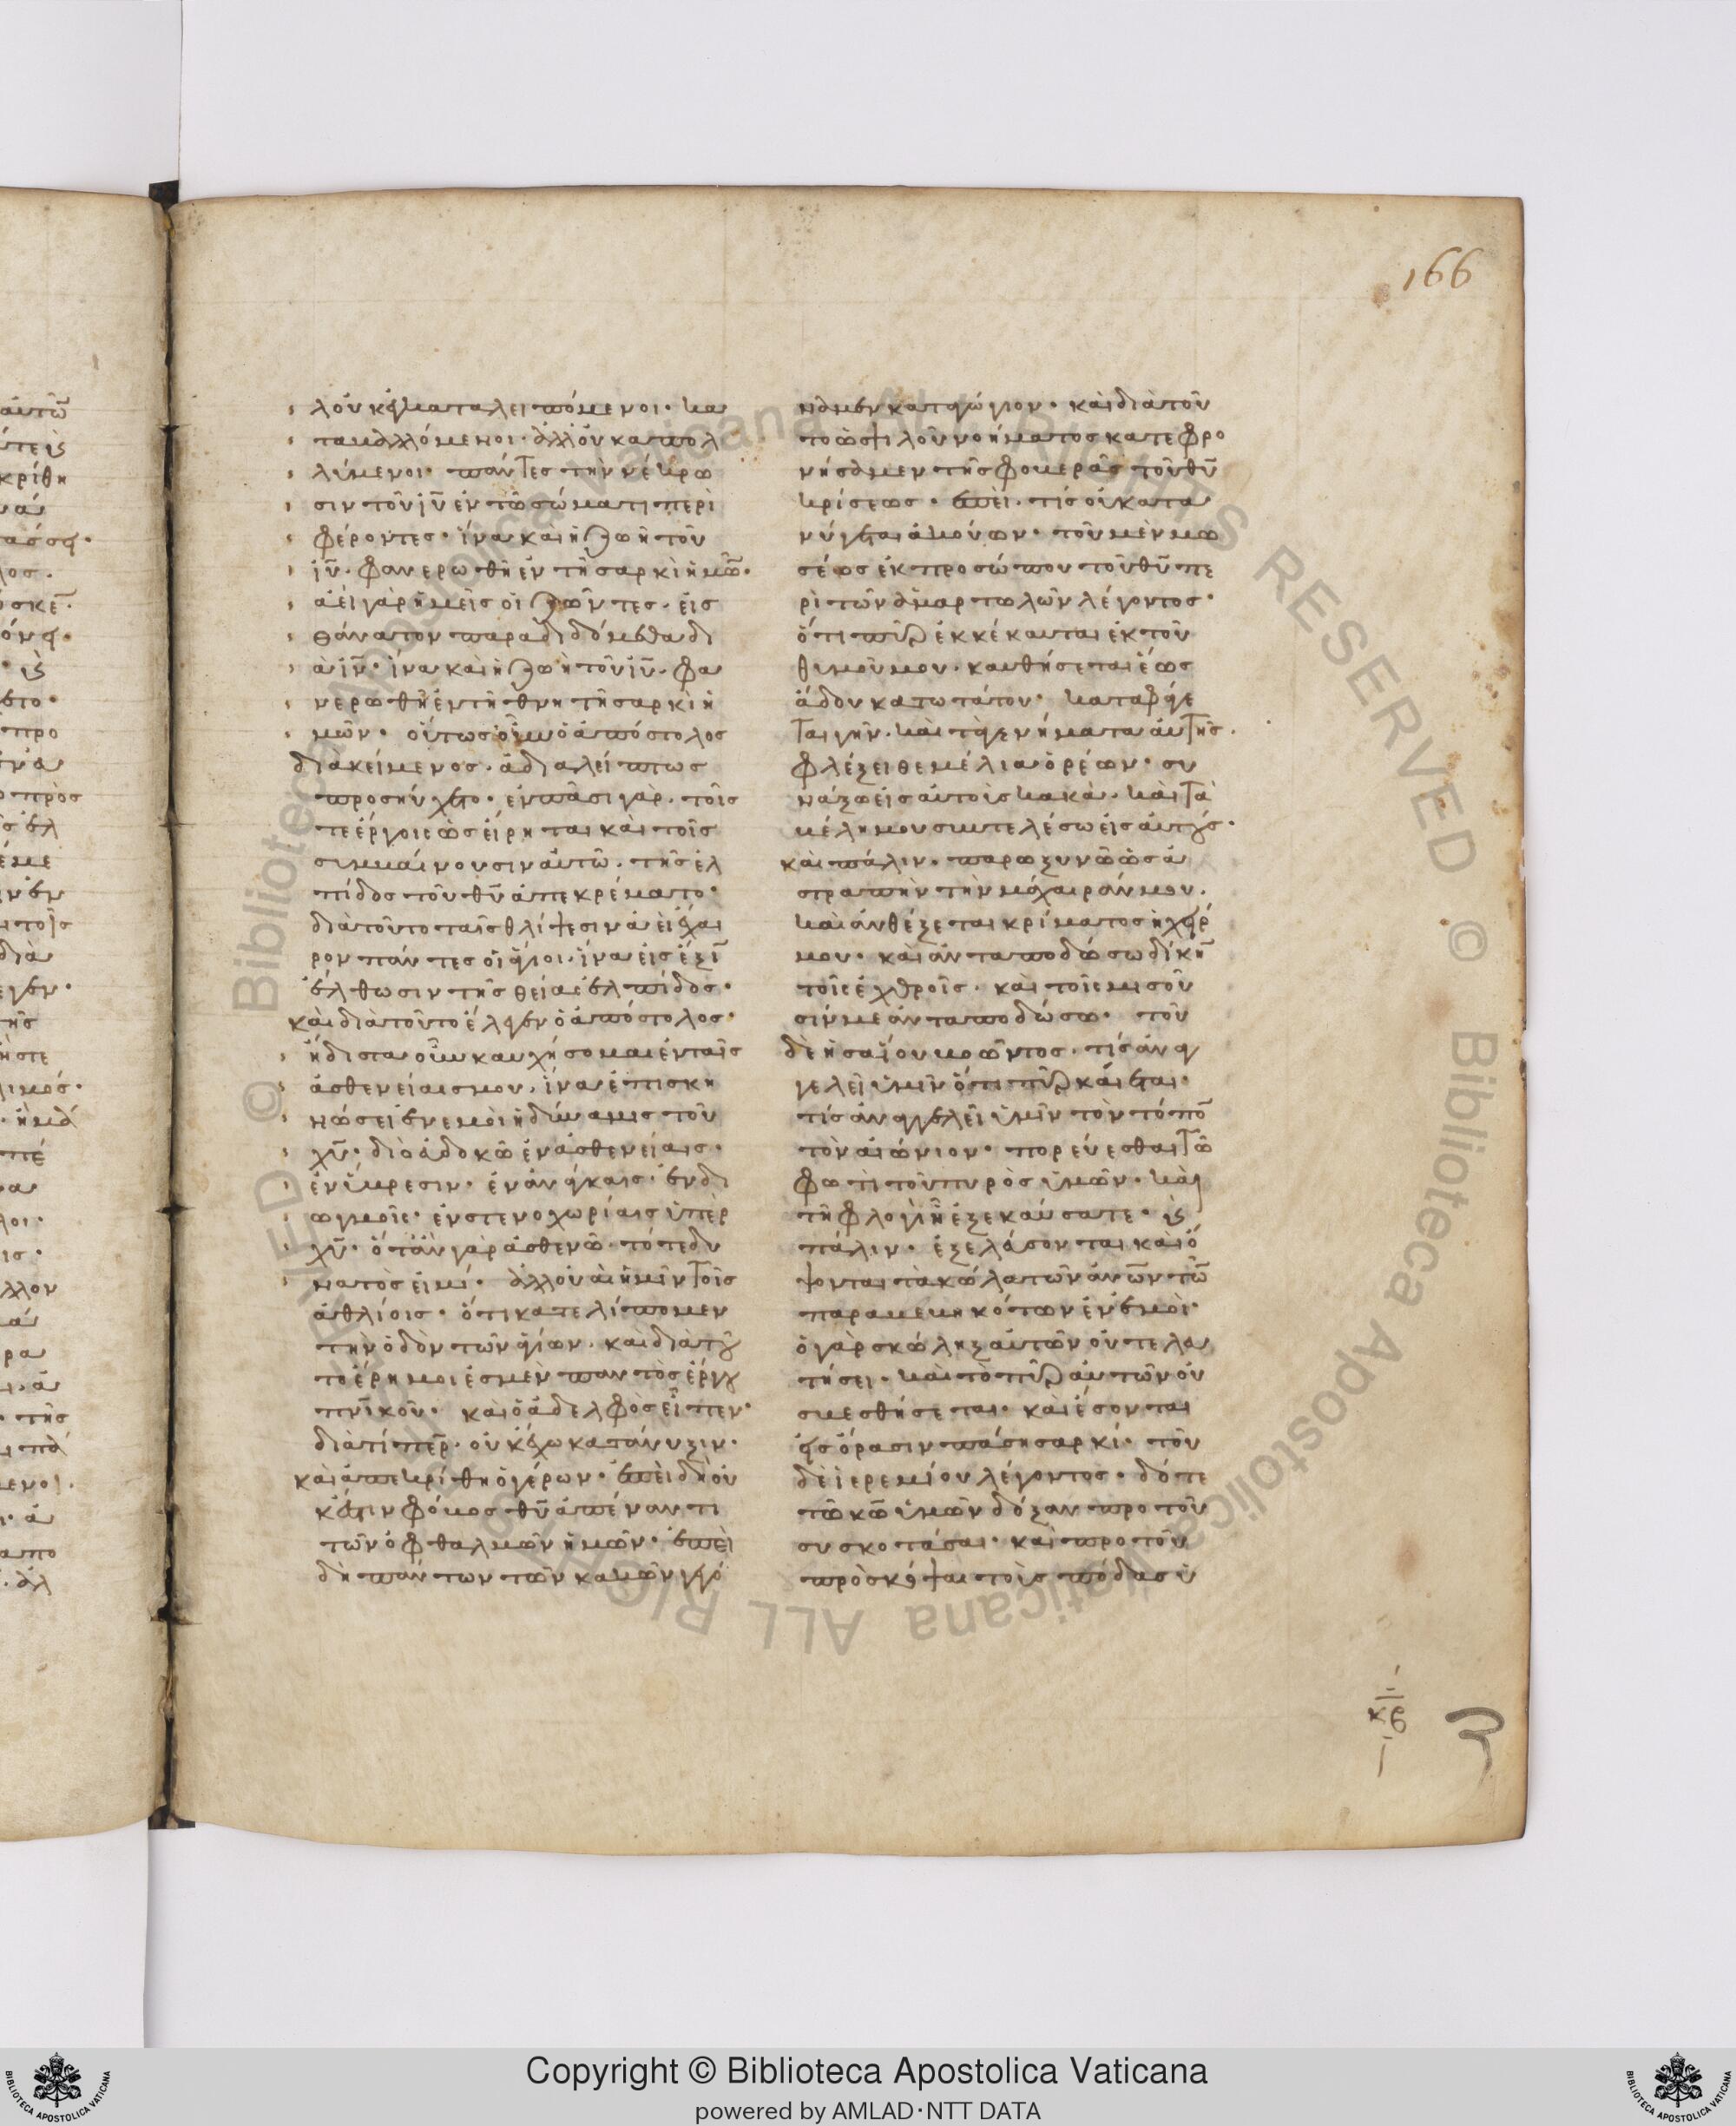 166
λ᾽ οὐκ ἐγκαταλειπόμενοι· κα
ταβαλλόμενοι· ἀλλ᾽ οὐκ ἀπολ
λύμενοι· πάντες τὴν νέκρω
σιν τοῦ ἰῦ ἐν τῶ σώματι περι
φέροντες· ἵνα καὶ ἡ ζωὴ τοῦ
ἰῦ· φανερωθῆ ἐν τῆ σαρκὶ ἡμῶν·
ἀεὶ γὰρ ἡμεῖς οἱ ζῶντες· εἰς
θάνατον παραδιδόμεθα δι
ὰ ἰν· ἵνα καὶ ἡ ζωὴ τοῦ ἰῦ· φα
νερωθῆ ἐν τῆ θνητῆ σαρκὶ ἡ
μῶν· οὕτως οὖν ὁ ἀπόστολος
διακείμενος· ἀδιαλείπτως
προσηύχετο· ἐν πᾶσι γὰρ· τοῖς
τε ἔργοις ὡς εἴρηται καὶ τοῖς
συμβαίνουσιν αὐτῶ· τῆς ἐλ
πίδος τοῦ θῦ ἀπεκρέματο·
διὰ τοῦτο ταῖς θλίψεσιν ἀεὶ ἔχαι
ρον πάντες οἱ ἅγιοι· ἵνα εἰς ἕξιν
ἔλθωσιν τῆς θείας ἐλπίδος·
καὶ διὰ τοῦτο ἔλεγεν ὁ ἀπόστολος·
ἥδιστα οὖν καυχήσομαι ἐν ταῖς
ἀσθενείαις μου· ἵνα ἐπισκη
νώσει ἐν ἐμοὶ ἡ δύναμις τοῦ
χῦ· διὸ εὐδοκῶ ἐν ἀσθενείαις·
ἐν ὕβρεσιν· ἐν ἀνάγκαις· ἐν δι
ωγμοῖς· ἐν στενοχωρίαις ὑπὲρ
χῦ· ὅταν γὰρ ἀσθενῶ· τότε δυ
νατὸς εἰμί· ἀλλ᾽ οὐαὶ ἡμῖν τοῖς
ἀθλίοις· ὅτι κατελίπομεν
τὴν ὁδὸν τῶν ἁγίων· καὶ διὰ τοῦ
το ἔρημοι ἐσμὲν παντὸς ἔργου
πνικοῦ· καὶ ὁ ἀδελφὸς εἶπεν·
διὰ τί περ· οὐκ ἔχω κατάνυξιν·
καὶ ἀπεκρίθη ὁ γέρων· ἐπειδὴ οὐ
κ ἔστιν φόβος θῦ ἀπέναντι
τῶν ὀφθαλμῶν ἡμῶν· ἐπει
δὴ πάντων τῶν κακῶν γεγό
ναμεν καταγώγιον· καὶ διὰ τοῦ
το ὡς ψιλοῦ νοήματος κατεφρο
νήσαμεν τῆς φοβερᾶς τοῦ θῦ
κρίσεως· ἐπεὶ· τίς οὐ κατα
νύγεται ἀκούων· τοῦ μὲν μω
σέως ἐκ προσώπου τοῦ θῦ πε
ρὶ τῶν ἁμαρτωλῶν λέγοντος·
ὅτι πῦρ ἐκκέκαυται ἐκ τοῦ
θυμοῦ μου· καυθήσεται ἕως
ἅδου κατωτάτου· καταφάγε
ται γῆν· καὶ τὰ γενήματα αὐτῆς·
φλέξει θεμέλια ὀρέων· συ
νάξω εἰς αὐτοὺς κακὰ· καὶ τὰ
βέλη μου συντελέσω εἰς αὐτούς·
καὶ πάλιν· παροξυνῶ ὡς ἀ
στραπὴν τὴν μάχαιράν μου·
καὶ ἀνθέξεται κρίματος ἡ χείρ
μου· καὶ ἀνταποδώσω δίκην
τοῖς ἐχθροῖς· καὶ τοῖς μισοῦ
σίν με ἀνταποδώσω· τοῦ
δὲ ἡσαΐου βοῶντος· τίς ἀναγ
γελεῖ ὑμῖν ὅτι πῦρ καίεται·
τίς ἀναγγελεῖ ὑμῖν τὸν τόπον
τὸν αἰώνιον· πορεύεσθαι τῶ
φωτὶ τοῦ πυρὸς ὑμῶν· καὶ
τῆ φλογὶ ἣ ἐξεκαύσατε· καὶ
πάλιν· ἐξελάσονται καὶ ὄ
ψονται τὰ κῶλα τῶν ἀνων τῶν
παραβεβηκότων ἐν ἐμοὶ·
ὁ γὰρ σκώληξ αὐτῶν οὐ τελευ
τήσει· καὶ τὸ πῦρ αὐτῶν οὐ
σβεσθήσεται· καὶ ἔσονται
εἰς ὅρασιν πάση σαρκί· τοῦ
δὲ ἱερεμίου λέγοντος· δότε
τῶ κω ὑμῶν δόξαν πρὸ τοῦ
συσκοτάσαι· καὶ πρὸ τοῦ
προσκόψαι τοὺς πόδας ὑ
κβ
Copyright © Biblioteca Apostolica Vaticana
powered by AMLAD·NTT DATA